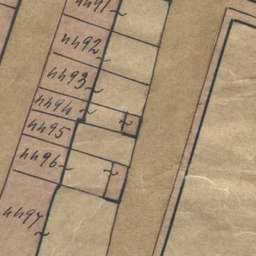 4491
4492
4493
4494
4495
4496
4497